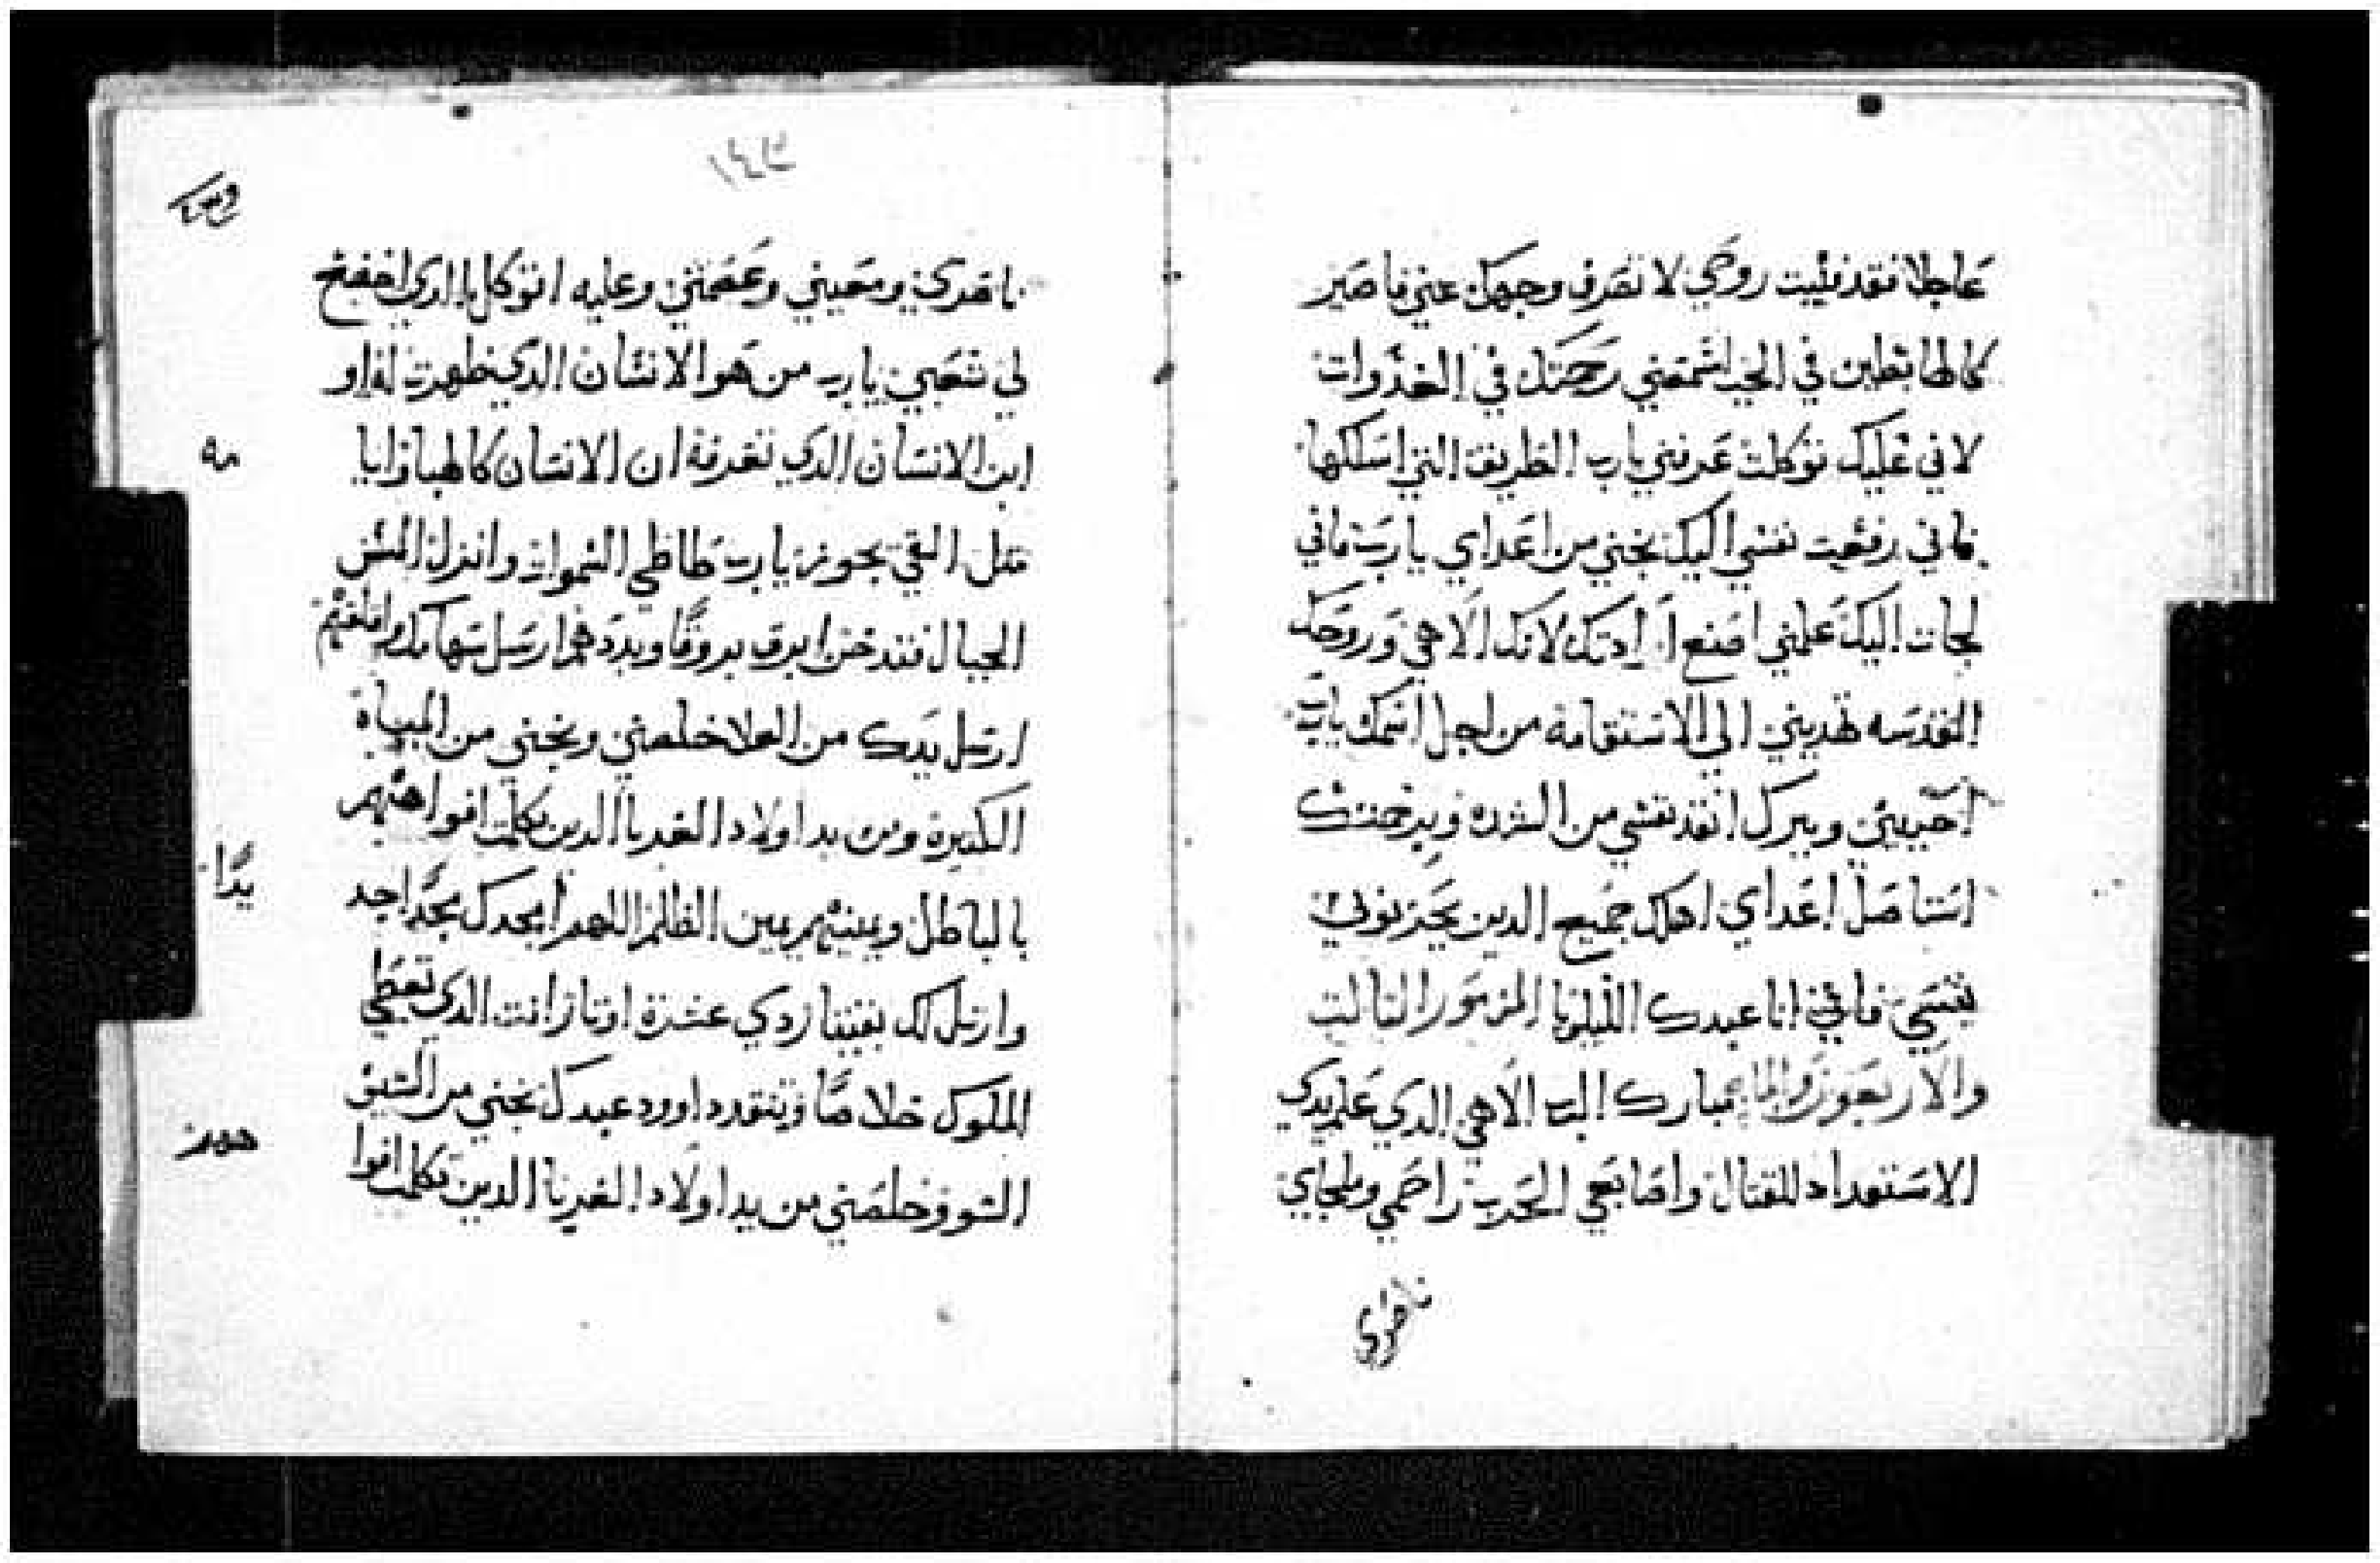 عاجلا فقد فنيت روحي لا تصرف وجهك عني فاصير
كالهابطين في الجب اسمعني رحمتك في الغدوات
لاني عليك توكلت عرفني يارب الطريق التي اسلكها
فاني رفعت نفسي اليك نجني من اعداي يا رب فاني
لجات اليك علمني اصنع ارادتك لانك الاهي وروحك
القدسه تهديني الي الاستقامة من اجل اسمك يارب
احييني وببرك انقذ نفسي من الشدة وبرحمتك
استاصل اعداي اهلك جميع الدين يحزنوني
نفسي فاني انا عبدك الليلويا المزمور الثالث
والاربعون والمايه مبارك الرب الاهي الدي علم يدي
الاستعداد للقتال واصابعي الحرب راحمي وملجاي
ناصري
١٤٣
ناصري ومعيني وعصمتي وعليه اتوكل الدي اخضع
لي شعبي يا رب من هو الانسان الدي ظهرت له او
ابن الانسان الدي تعرفه ان الانسان كالهبا وايا
مثل الفي يجوز يا رب طاطي السموات وانزل المس
الجبال فتدخن ابرق بروقا وبددهم ارسل سهامك واقلقهم
ارسل يدك من العلا خلصني ونجني من المياة
الكثيرة ومن يد اولاد الغربا الدين تكلمت افواههم
بالباطل ويمينهم يمين الظلم اللهم امجدك مجدا جد
وارتل لك بقيثار دي عشرة اوتار انت الدي تعطي
الملوك خلاصا وينقد داوود عبدك نجني من السيف
السو وخلصني من يد اولاد الغربا الدين تكلمت افوا
يدا